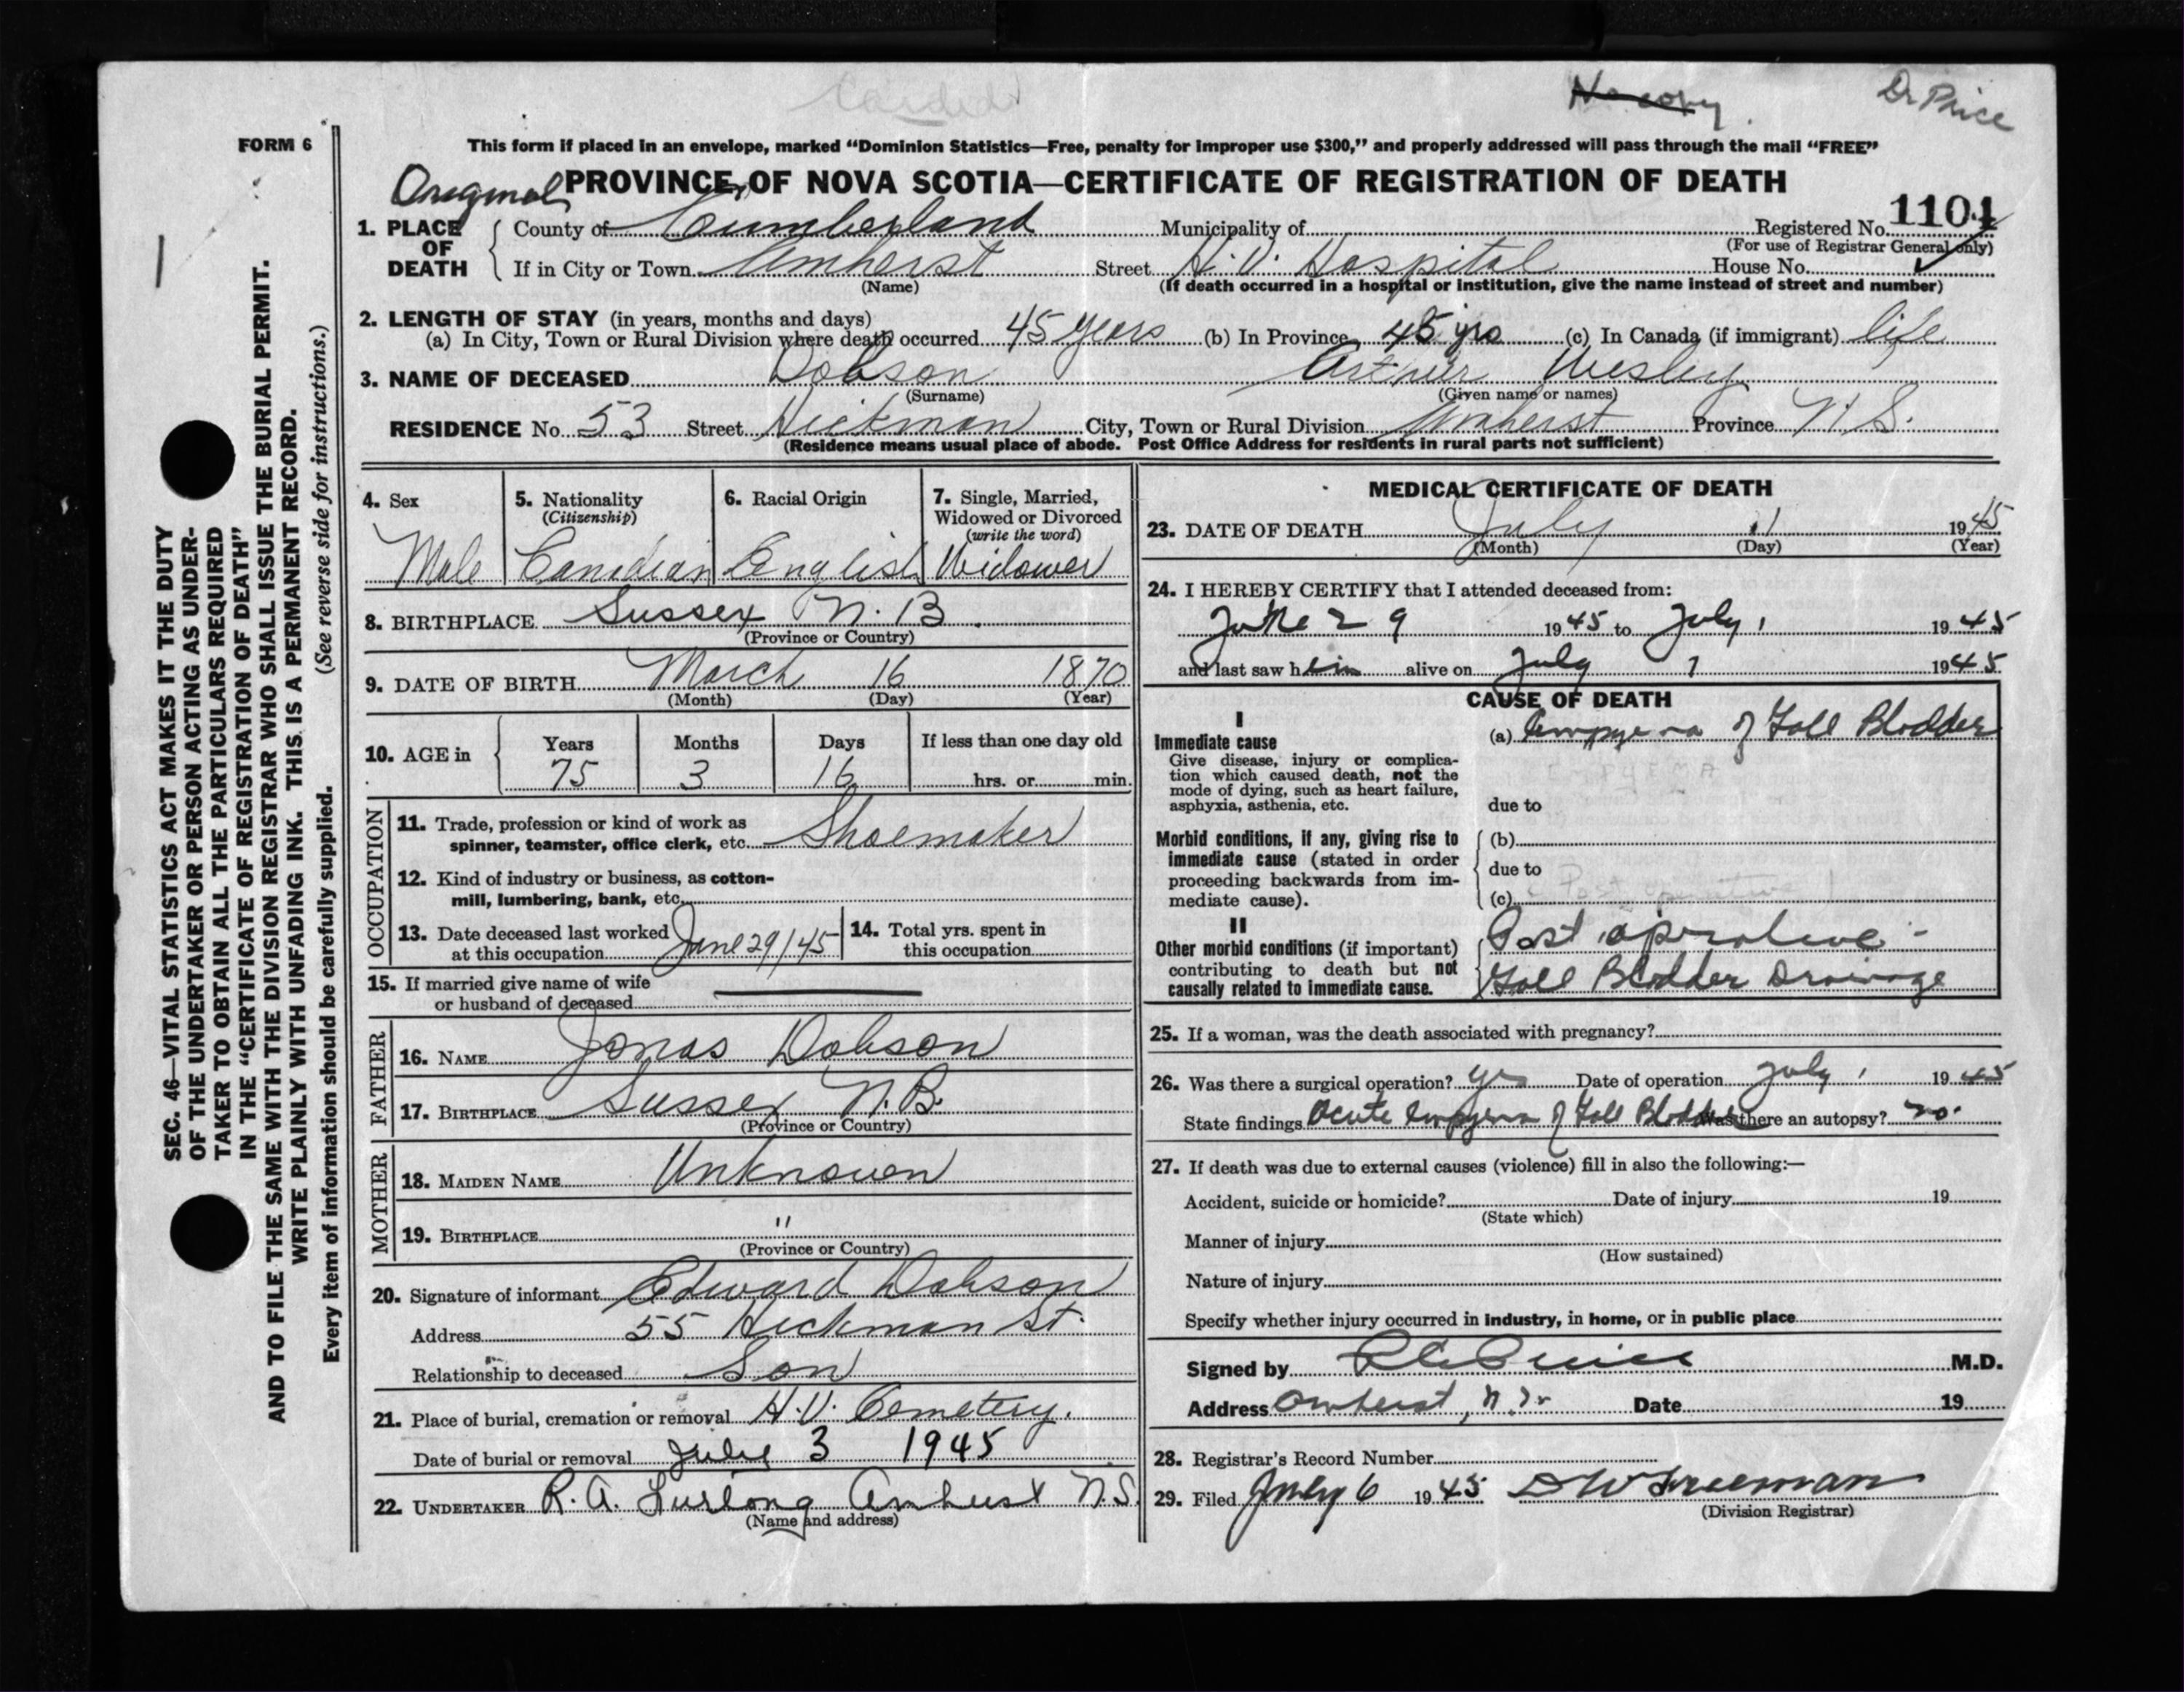 No copy
Dr Price
FORM 6
This form if placed in an envelope, marked "Dominion Statistics—Free, penalty for improper use $300," and properly addressed will pass through the mail "FREE"
Original PROVINCE OF NOVA SCOTIA—CERTIFICATE OF REGISTRATION OF DEATH
1. PLACE OF DEATH
County of Cumberland Municipality of Registered No. 1101
(For use of Registrar General only)
If in City or Town Amherst Street H.V. Hospital House No.
(Name) (If death occurred in a hospital or institution, give the name instead of street and number)
2. LENGTH OF STAY (in years, months and days)
(a) In City, Town or Rural Division where death occurred 45 years (b) In Province 45 yrs (c) In Canada (if immigrant) life
3. NAME OF DECEASED Dobson Arthur Wesley
(Surname) (Given name or names)
RESIDENCE No. 53 Street Hickman City, Town or Rural Division Amherst Province N.S.
(Residence means usual place of abode. Post Office Address for residents in rural parts not sufficient)
4. Sex
Male
5. Nationality
(Citizenship)
Canadian
6. Racial Origin
English
7. Single, Married,
Widowed or Divorced
(write the word)
Widower
8. BIRTHPLACE Sussex N.B.
(Province or Country)
9. DATE OF BIRTH March 16 1870
(Month) (Day) (Year)
10. AGE in Years Months Days If less than one day old
75 3 16 hrs. or min.
OCCUPATION
11. Trade, profession or kind of work as
spinner, teamster, office clerk, etc. Shoemaker
12. Kind of industry or business, as cotton-
mill, lumbering, bank, etc.
13. Date deceased last worked
at this occupation June 29/45
14. Total yrs. spent in
this occupation
15. If married give name of wife
or husband of deceased
FATHER
16. NAME Jonas Dobson
17. BIRTHPLACE Sussex N.B.
(Province or Country)
MOTHER
18. MAIDEN NAME Unknown
19. BIRTHPLACE "
(Province or Country)
20. Signature of informant Edward Dobson
Address 55 Hickman St.
Relationship to deceased Son
21. Place of burial, cremation or removal H.V. Cemetery.
Date of burial or removal July 3 1945
22. UNDERTAKER R.A. Furlong Amherst N.S.
(Name and address)
MEDICAL CERTIFICATE OF DEATH
23. DATE OF DEATH July 1 1945
(Month) (Day) (Year)
24. I HEREBY CERTIFY that I attended deceased from:
June 29 1945 to July 1 1945
and last saw him alive on July 1 1945
CAUSE OF DEATH
I
Immediate cause
Give disease, injury or complica-
tion which caused death, not the
mode of dying, such as heart failure,
asphyxia, asthenia, etc.
(a) Empyema of Gall Bladder
EMPYEMA
due to
Morbid conditions, if any, giving rise to
immediate cause (stated in order
proceeding backwards from im-
mediate cause).
(b)
due to
(c) Post operative
II
Other morbid conditions (if important)
contributing to death but not
causally related to immediate cause.
Post operative -
Gall Bladder Drainage
25. If a woman, was the death associated with pregnancy?
26. Was there a surgical operation? yes Date of operation July 1 1945
State findings Acute empyema of Gall Bladder Was there an autopsy? no.
27. If death was due to external causes (violence) fill in also the following:—
Accident, suicide or homicide? Date of injury 19
(State which)
Manner of injury
(How sustained)
Nature of injury
Specify whether injury occurred in industry, in home, or in public place
Signed by Price M.D.
Address Amherst, N.S. Date 19
28. Registrar's Record Number
29. Filed July 6 1945 D W Freeman
(Division Registrar)
SEC. 46—VITAL STATISTICS ACT MAKES IT THE DUTY
OF THE UNDERTAKER OR PERSON ACTING AS UNDER-
TAKER TO OBTAIN ALL THE PARTICULARS REQUIRED
IN THE "CERTIFICATE OF REGISTRATION OF DEATH"
AND TO FILE THE SAME WITH THE DIVISION REGISTRAR WHO SHALL ISSUE THE BURIAL PERMIT.
WRITE PLAINLY WITH UNFADING INK. THIS IS A PERMANENT RECORD.
Every item of information should be carefully supplied. (See reverse side for instructions.)